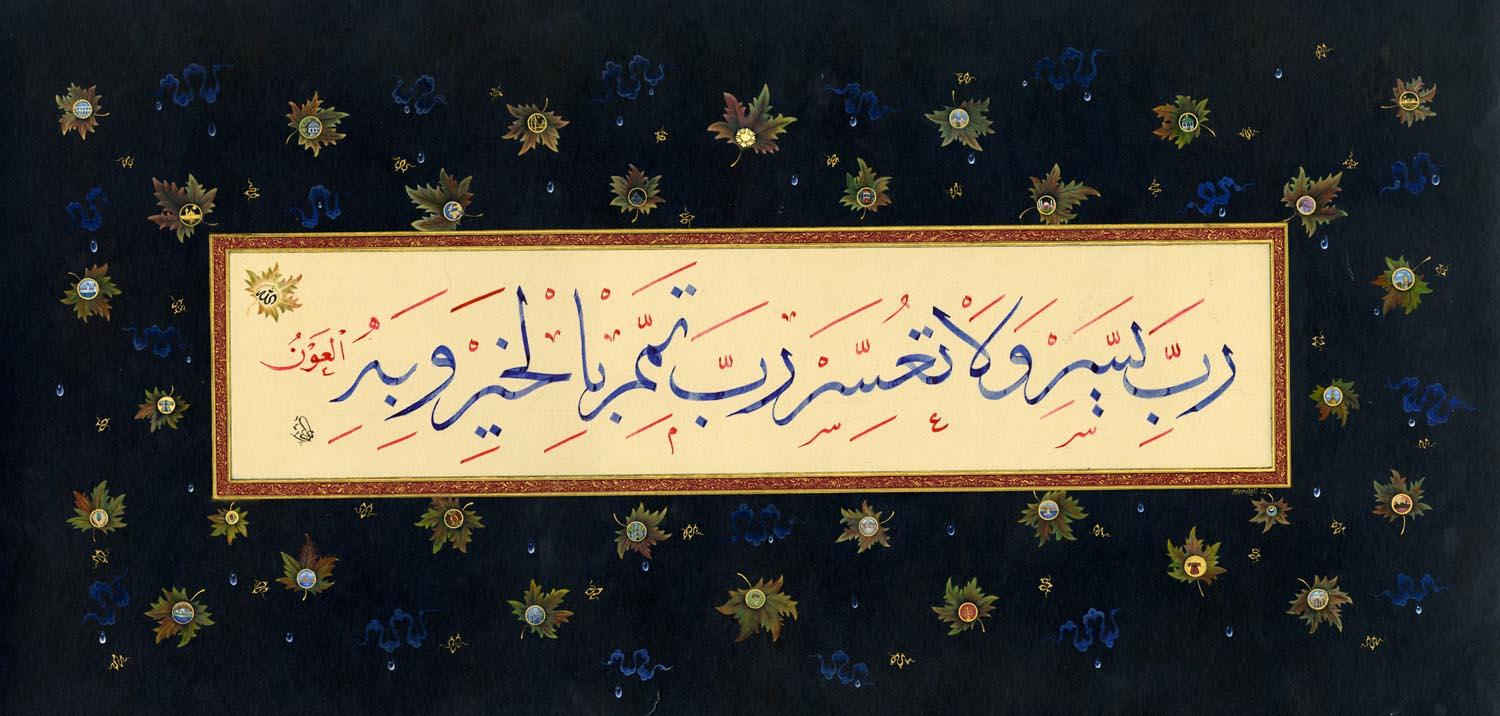 رَبِّ يَسِّرْ وَلَا تُعَسِّرْ رَبِّ تَمِّمْ بِالْخَيْرِ وَبِهِ الْعَوْنُ
الله